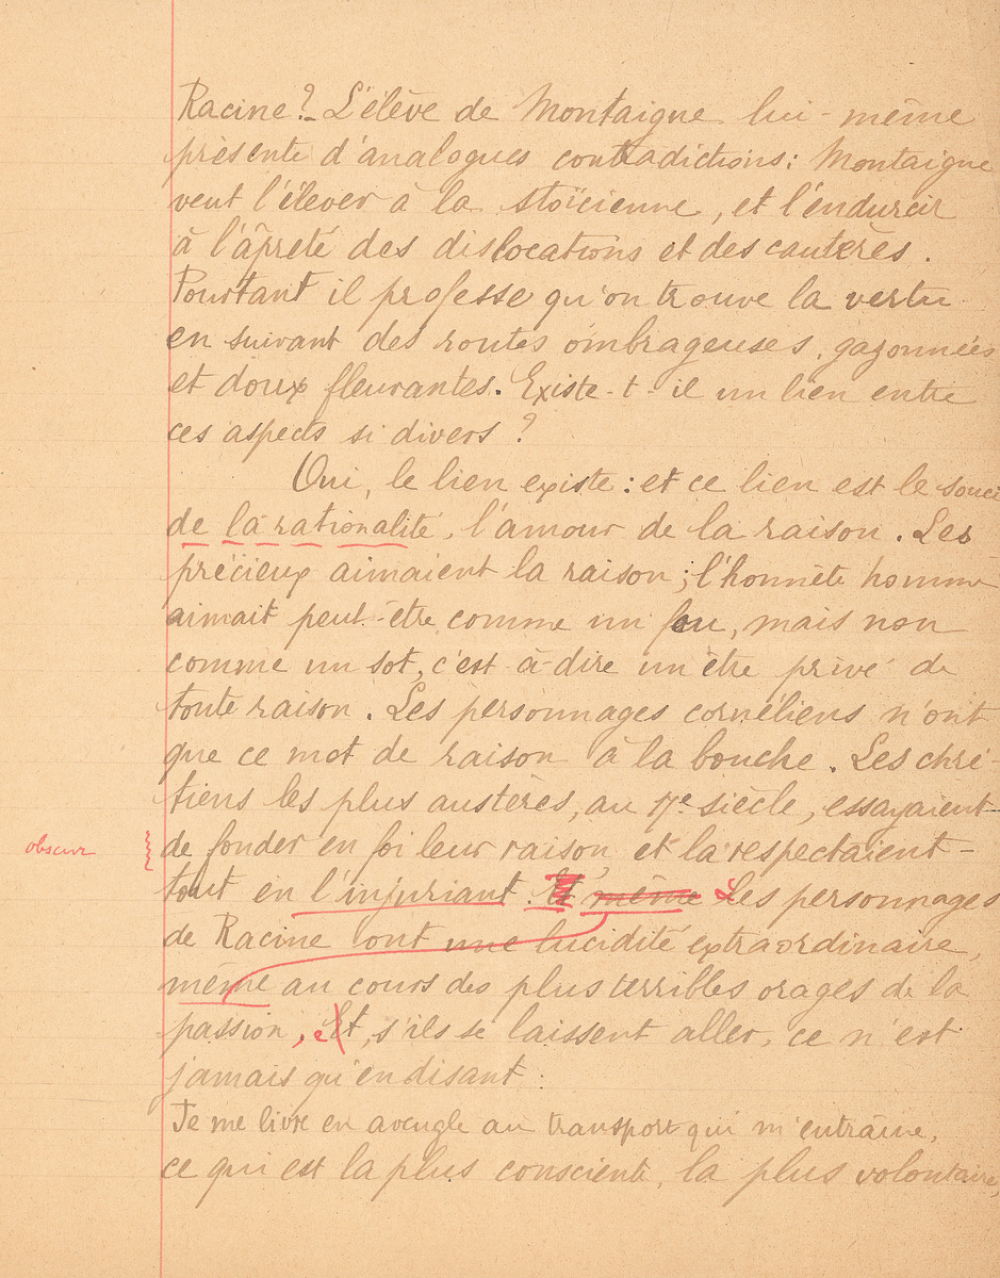 Racine? L'élève de Montaigne lui-même
présente d'analogues contradictions : Montaigne
veut l'élever à la stoïcienne, et l'endurcir
à l'âpreté des dislocations et des cautères.
Pourtant il professe qu'on trouve la vertu
en suivant des routes ombrageuses, gazonnées
et doux fleurantes. Existe-t-il un lien entre
ces aspects si divers ?
Oui, le lien existe : et ce lien est le souci
de la rationalité, l'amour de la raison. Les
précieux aimaient la raison ; l'honnête homme
aimait peut-être comme un fou, mais non
comme un sot, c'est-à-dire un être privé de
toute raison. Les personnages cornéliens n'ont
que ce mot de raison à la bouche. Les chré-
tiens les plus austères, au 17e siècle, essayaient
obscur
de fonder en foi leur raison, et la respectaient
tout en l'injuriant. Et même Les personnages
de Racine ont une lucidité extraordinaire,
même au cours des plus terribles orages de la
passion, et, s'ils se laissent aller, ce n'est
jamais qu'en disant :
Je me livre en aveugle au transport qui m'entraîne,
ce qui est la plus consciente, la plus volontaire,